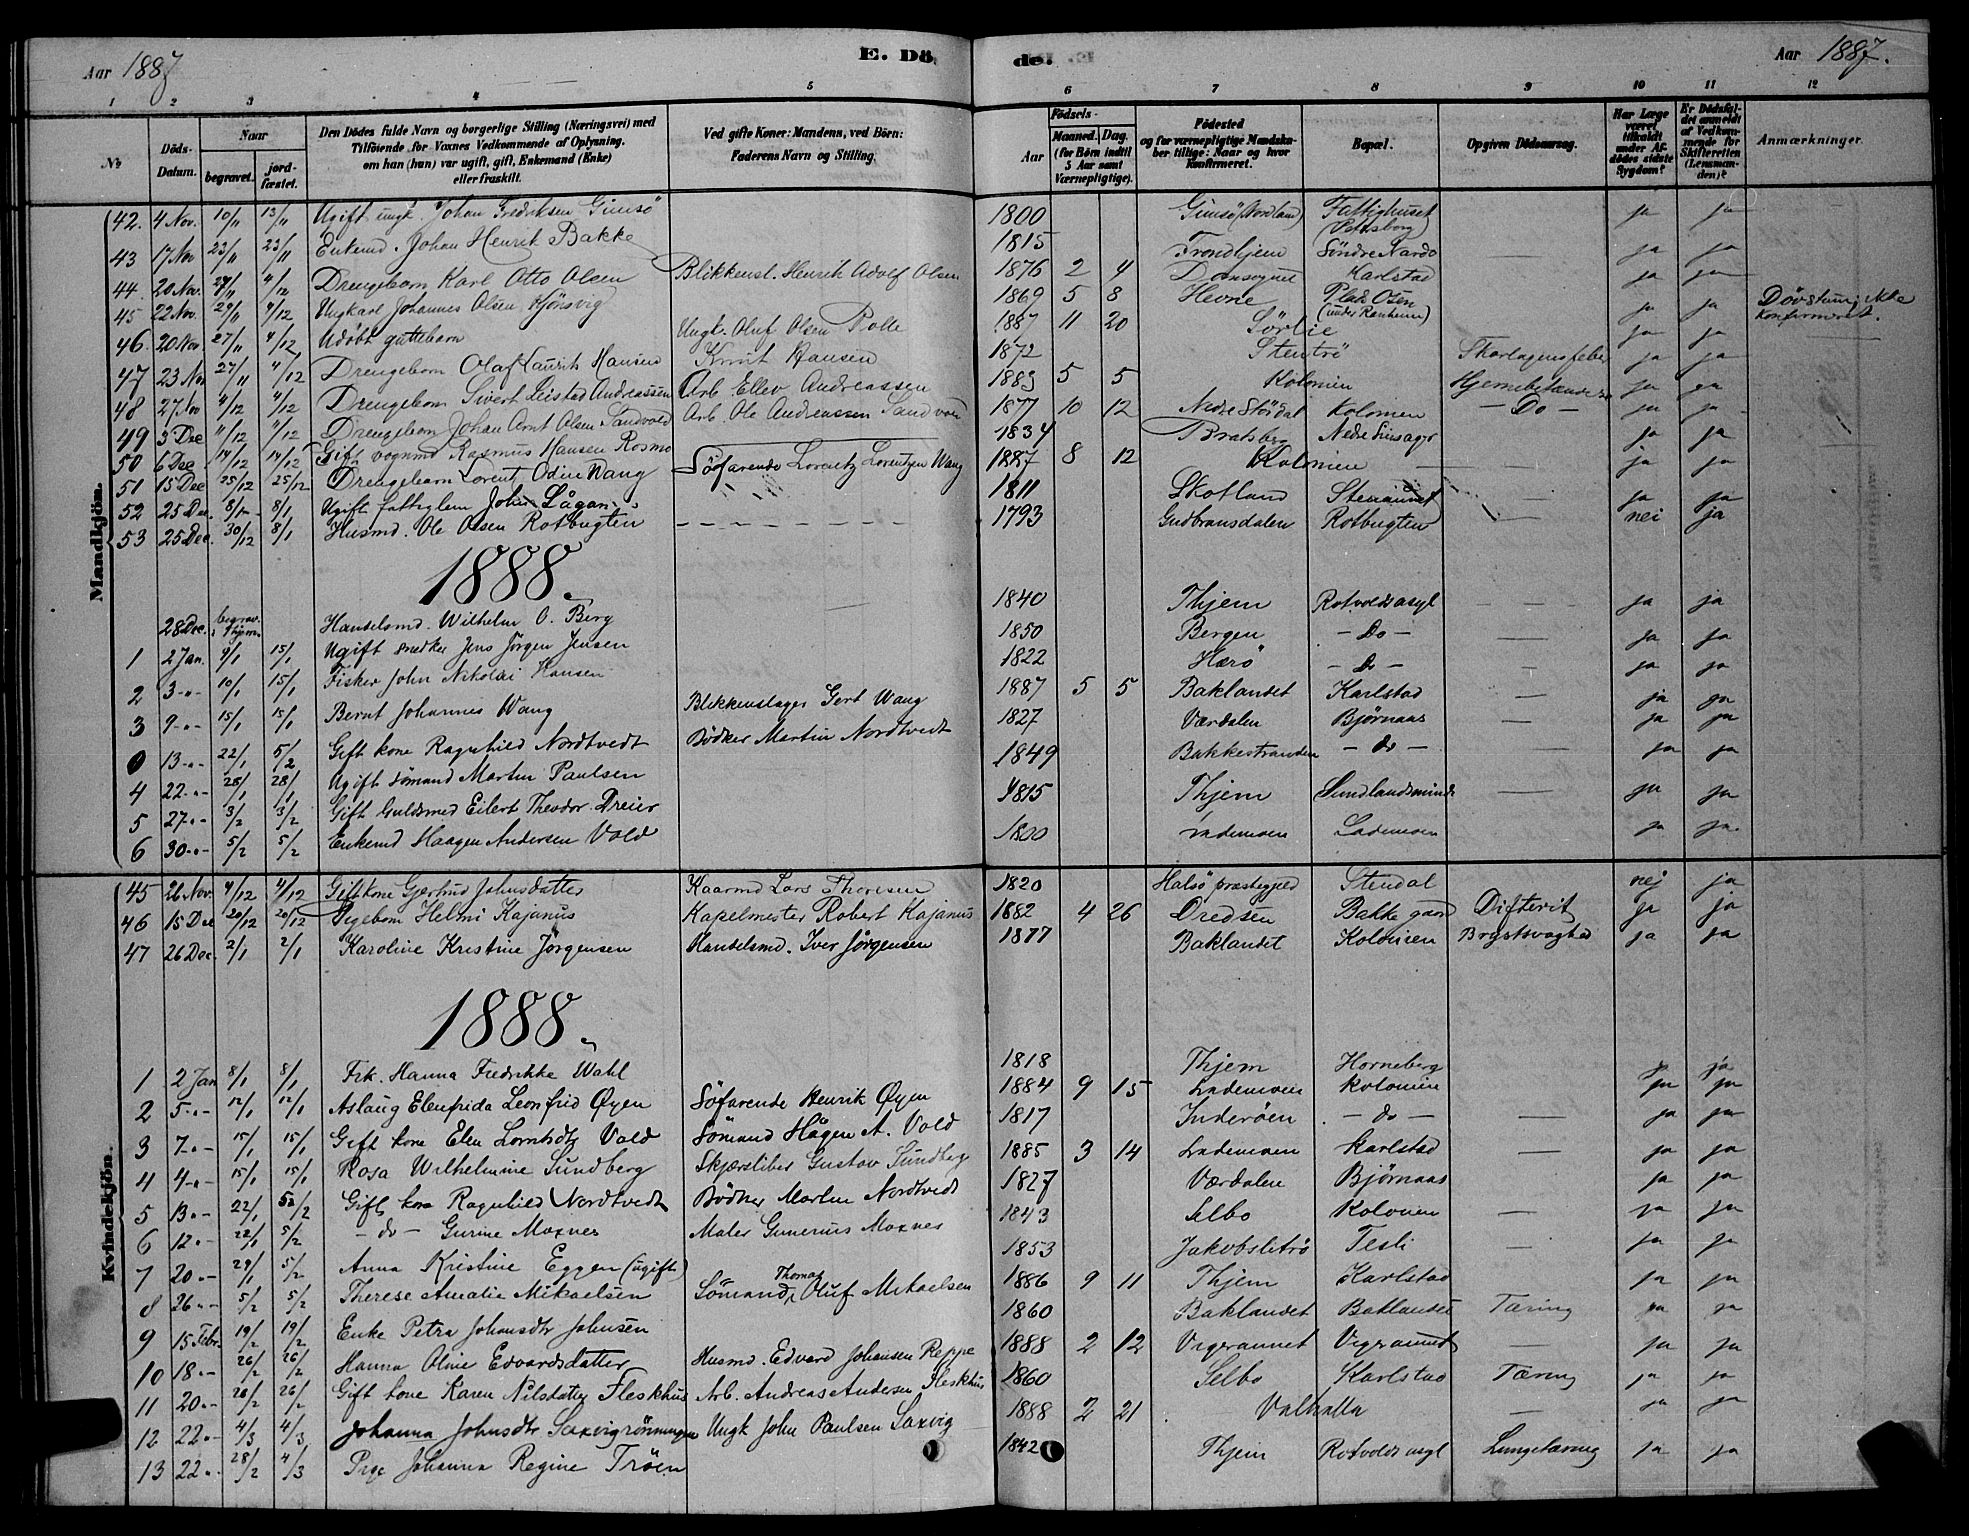 Aar 1887
E. Dö
de.
Aar 1887.
1 2 3 4 5 6 7 8 9 10 11 12
No
Döds-Datum.
Naar
begravet.
jord-fæstet.
Den Dödes fulde Navn og borgerlige Stilling (Næringsvei) med Tilföiende for Voxnes Vedkommende af Oplysning, om han (hun) var ugift, gift, Enkemand (Enke) eller fraskilt.
Ved gifte Koner: Mandens, ved Börn: Faderens Navn og Stilling.
Födsels-
Aar
Maaned. Dag.
(for Börn indtil 5 Aar samt Værnepligtige).
Födested og for værnepligtige Mandskaber tillige: Naar og hvor Konfirmeret.
Bopæl.
Opgiven Dödsaarsag.
Har Læge været tilkaldt under Afdödes sidste Sygdom?
Er Dödsfaldet anmeldt af Vedkommende for Skifteretten (Lensmanden)?
Anmærkninger.
Mandkjön.
42. 4 Nov. 10/11 13/11 Ugift ungk. Johan Fredriksen Gimsö 1800 Gimsö (Nordland) Fattighuset (Petersborg) ja ja
43 17 Nov 23/11 23/11 Enkemd. Johan Henrik Bakke 1815 Trondhjem Söndre Nardo — ja ja
44. 20 Nov. 27/11 4/12 Drengebarn Karl Otto Olsen Blikkensl. Henrik Adolf Olsen 1876 2 4 Domsognet Karlstad ja ja
45 22 Nov. 29/11 4/12 Ungkarl Johannes Olsen Kjönsvig 1869 5 8 Hevne Plads Osen (under Ranheim) ja ja Døvstum, ikke konfirmeret.
46. 20 Nov. 27/11 4/12 Udöbt guttebarn Ungk. Oluf Olsen Rolle 1887 11 20 Sörlie ja ja
47 23 Nov 27/11 4/12 Drengebarn Olaf Laurits Hansen Knut Hansen 1872 Stentrö Skarlagensfeber ja ja
48 27 Nov 4/12 4/12 Drengebarn Sivert Leistad Andreassen Arb. Ellev Andreassen 1883 5 5 Kolonien Hjernebetændelse ja ja
49 3 Dec 11/12 11/12 Drengebarn Johan Arnt Olsen Sandvold Arb. Ole Andreassen Sandvold 1877 10 12 Nedre Stördal Kolonien — Do — ja ja
50 6 Dec 14/12 14/12 Gift vognmd Rasmus Hansen Rosmo 1834 Bratsberg Nedre ja ja
51 15 Dec 25/12 25/12 Drengebarn Lorentz Odin Wang Söfarende Lorentz Lorentzen Wang 1887 8 12 Kolonien — ja ja
52 25 Dec. 8/1 8/1 Ugift fattiglem John Lågan 1811 Skotland Stenaunet — ja ja
53 25 Dec. 30/12 8/1 Husmd. Ole Olsen Rotbugten 1793 Gudbransdalen Rotbugten — nei ja
1888.
28 Dec. begrav. i Thjem Handelsmd. Wilhelm O. Berg 1840 Thjem Rotvolds asyl — ja ja
1 2 Jan. 9/1 15/1 Ugift snedker Jens Jörgen Jensen 1850 Bergen — Do — — ja ja
2 3 -"- 10/1 15/1 Fisker John Nikolai Hansen 1822 Herö — Do — — ja ja
3 9 -"- 15/1 15/1 Bernt Johannes Wang Blikkenslager Gert Wang 1887 5 5 Baklandet Karlstad — ja ja
0 13 -"- 22/1 5/2 Gift kone Ragnhild Nordtvedt Bödker Martin Nordtvedt 1827 Værdalen Bjørnaas — ja ja
4 22 -"- 28/1 28/1 Ugift Sömand Martin Paulsen 1849 Bakkestranden — do — — ja ja
5 27 -"- 3/2 3/2 Gift Guldsmed Eilert Theodor Dreier 1815 Thjem Sundlandsminde — ja ja
6 30 -"- 5/2 5/2 Enkemd Haagen Andersen Vold 1800 Lademoen Lademoen ja ja
Kvindekjön.
45 26 Nov. 4/12 4/12 Gift kone Gjertrud Johnsdatter Kaarmd Lars Thoresen 1820 Halsö præstegjeld Stendal nej ja
46 15 Dec 20/12 20/12 Pigebarn Helmi Kajanus Kapelmester Robert Kajanus 1882 4 26 Dredsen Bakke gaard Difterit ja ja
47 26 Dec. 2/1 2/1 Karoline Kristine Jörgensen Handelsmd. Iver Jörgensen 1877 Baklandet Kolonien Brystsvaghed ja ja
1888.
1 2 Jan 8/1 8/1 Frk. Hanna Fredrikke Wahl 1818 Thjem Horneberg ja ja
2 5 -"- 12/1 12/1 Aslaug Elenfrida Leonfrid Øyen Söfarende Henrik Øyen 1884 9 15 Lademoen Kolonien ja ja
3 7 -"- 15/1 15/1 Gift kone Elen Lorntsdtr Vold Sömand Hågen A. Vold 1817 Inderöen — do — — ja ja
4 4 -"- 15/1 15/1 Rosa Wilhelmine Sundberg Skjærsliber Gustav Sundberg 1885 3 14 Lademoen Karlstad — ja ja
5 13 -"- 22/1 5/2 Gift kone Ragnhild Nordtvedt Bödker Martin Nordtvedt 1827 Værdalen Bjørnaas ja ja
6 12 -"- 22/1 5/2 — do — Gurine Moxnes Maler Gunerius Moxnes 1843 Selbo Kolonien — ja ja
7 20 -"- 29/1 5/2 Anna Kristine Eggen (ugift) 1853 Jakobslitrö Tesli — ja ja
8 26 -"- 5/2 5/2 Therese Amalie Mikaelsen Sömand Thomas Oluf Mikaelsen 1886 9 11 Thjem Karlstad ja ja
9 15 Febr. 19/2 19/2 Enke Petra Johansdtr Johnsen 1860 Baklandet Baklandet Tæring ja ja
10 18 -"- 26/2 26/2 Hanna Oline Edvardsdatter Husmd. Edvard Johansen Reppe 1888 2 12 Vigraunet Vigraunet — ja ja
11 20 -"- 26/2 26/2 Gift kone Karen Nilsdatter Fleskhus Arb. Andreas Andersen Fleskhus 1860 Selbo Karlstad Tæring ja ja
12 22 -"- 4/3 4/3 Johanna Johnsdtr Saxvigrönningen Ungk John Paulsen Saxvig 1888 2 21 Valhalla — ja ja
13 22 -"- 28/2 4/3 Pige Johanna Regine Tröen 1842 Thjem Rotvolds asyl Lungetæring ja ja